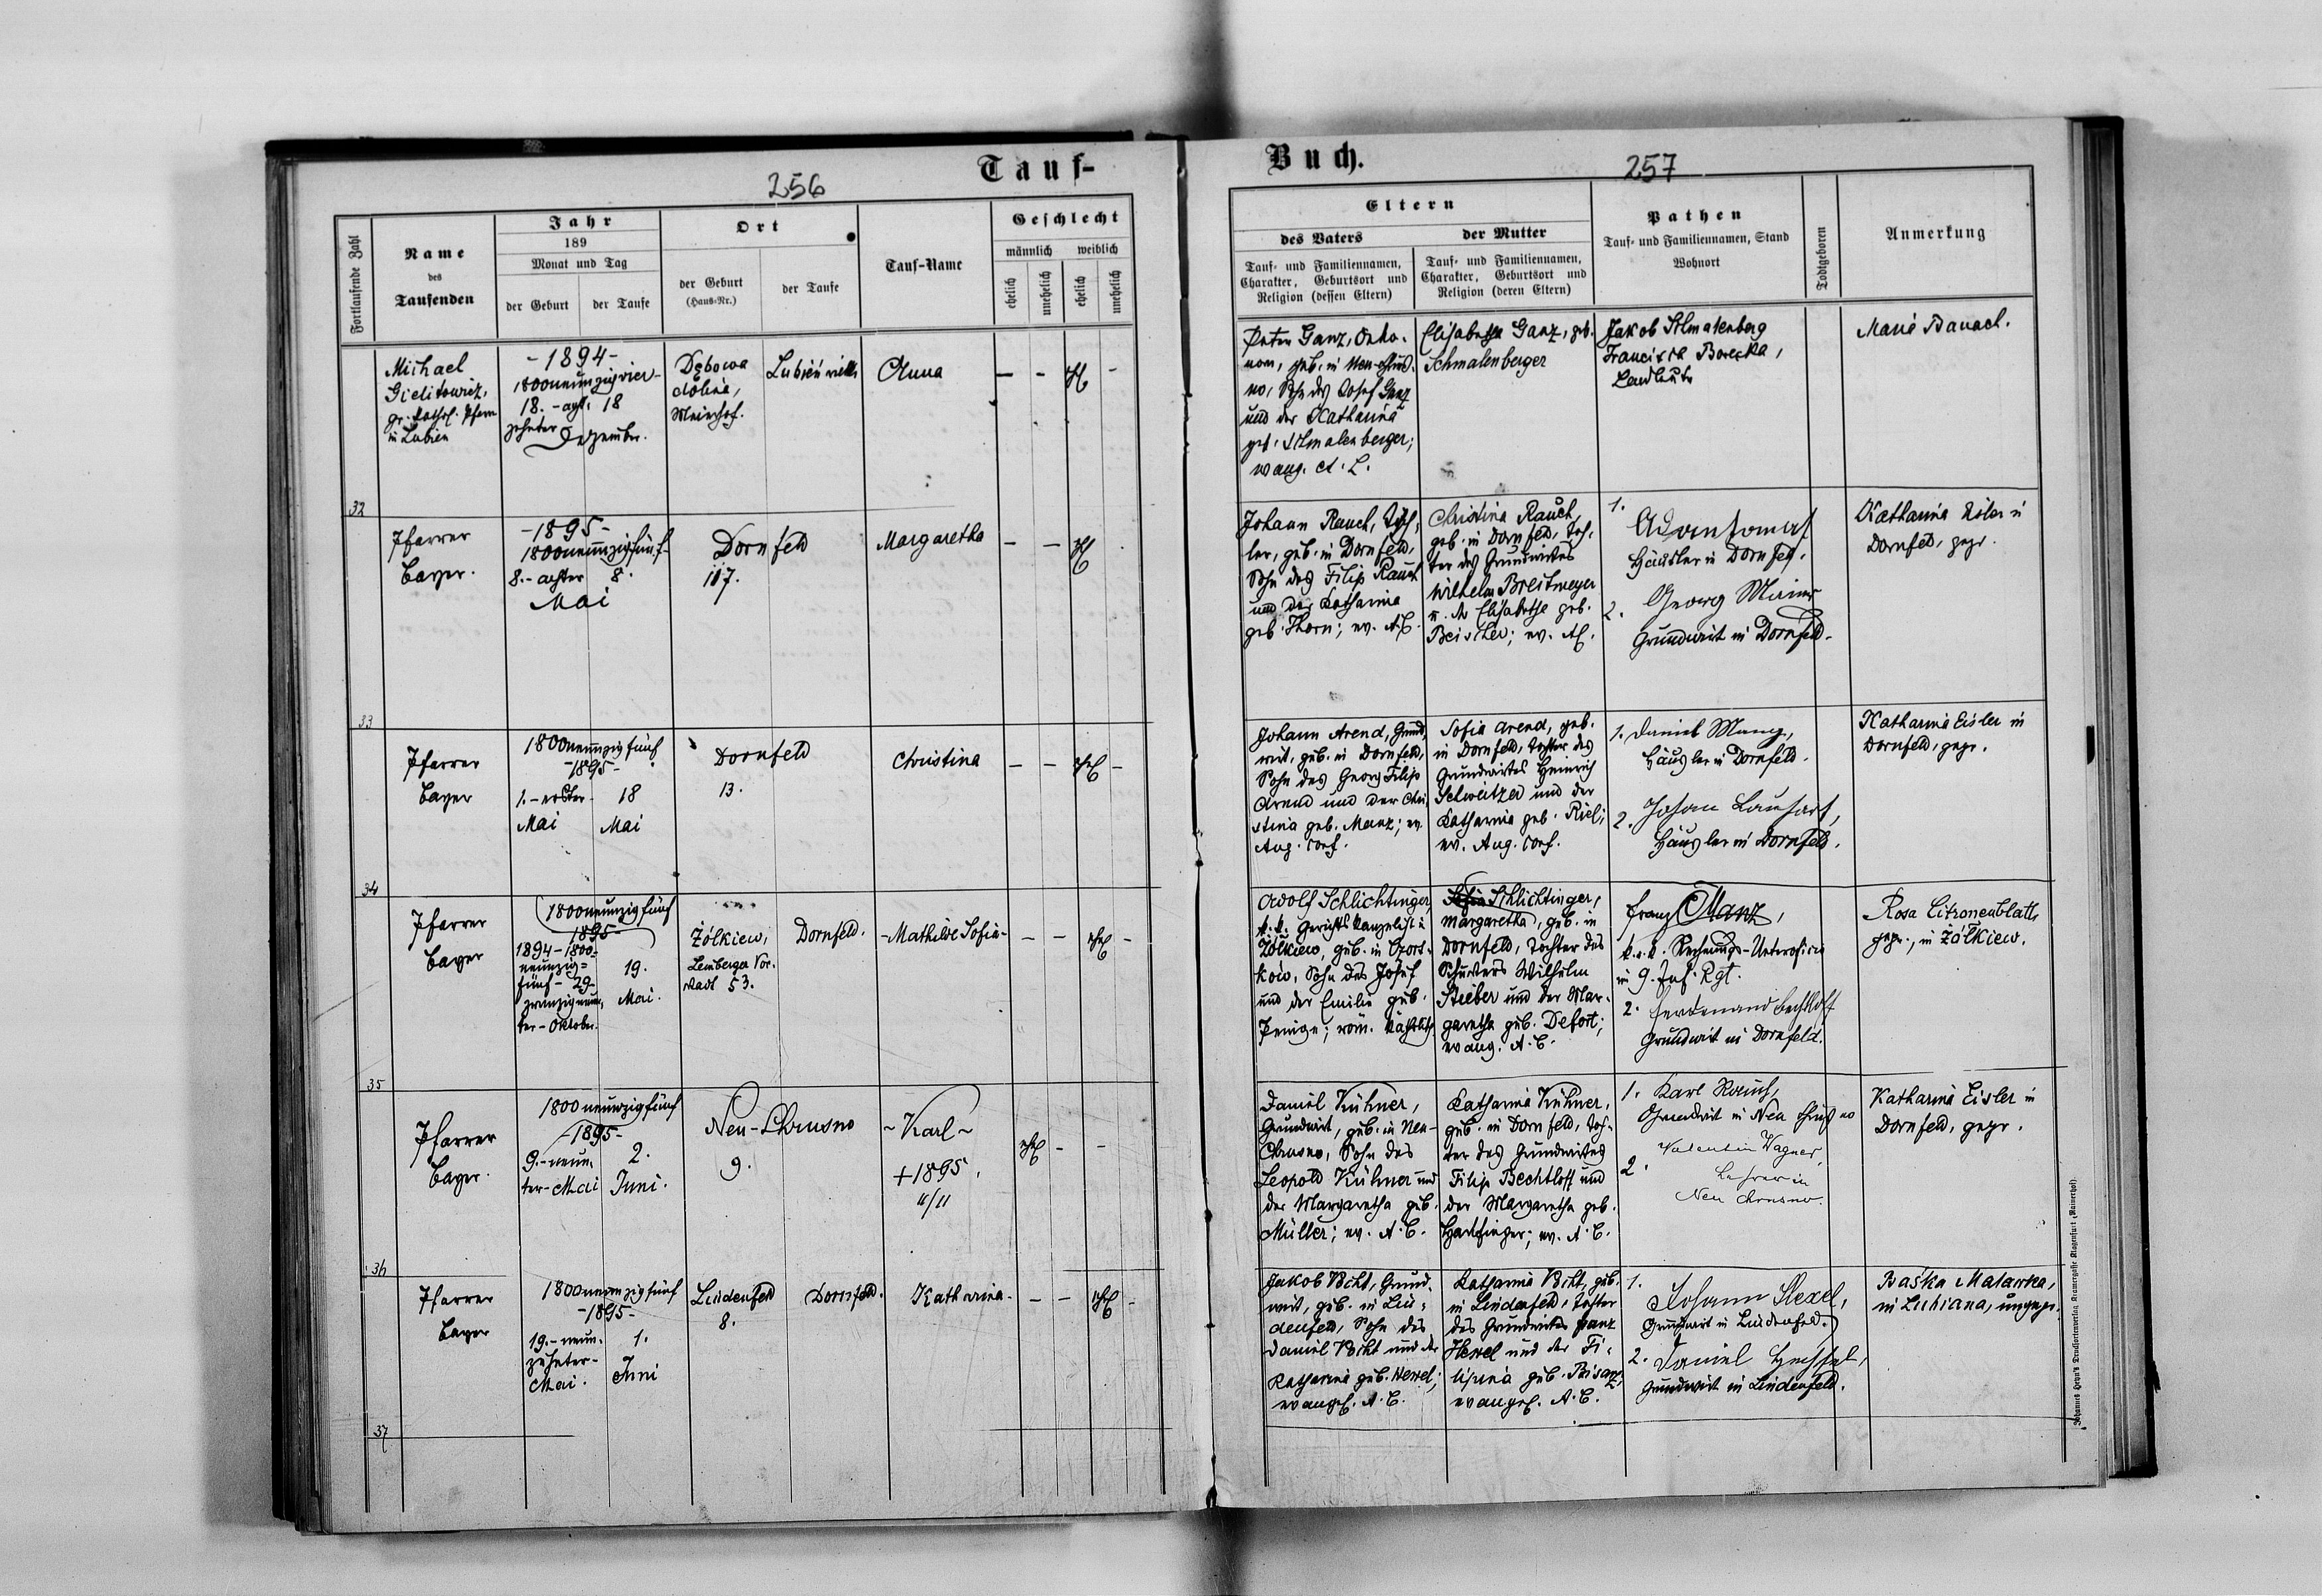 256
Tauf-
Fortlaufende Zahl
Name
des
Taufenden
Jahr
189
Monat und Tag
der Geburt
der Taufe
Ort
der Geburt
(Haus-Nr.)
der Taufe
Tauf-Name
Geschlecht
männlich
weiblich
ehelich
unehelich
ehelich
unehelich
Michael
gr. kathol. Pfarrer
in Lubien
-1894-
1800neunzigvier-
18.-acht- 18
zehnter
Dezember.
Meierhof.
Anna
32
Pfarrer
Bayer.
-1895-
1800neunzigfünf-
8.-achter 8.
Mai
Dornfeld
117.
Margaretha
33
Pfarrer
Bayer
1800neunzigfünf
-1895-
1.-erster 18
Mai Mai
Dornfeld
13.
Christina
34
Pfarrer
Bayer
1800neunzigfünf
1895-
1894-1800-
neunzig-
fünf-29-
zwanzigneun-
ter-Oktober.
19.
Mai.
Żólkiew,
Lemberger Vor-
stadt 53.
Dornfeld.
-Mathilde Sofia-
35
Pfarrer
Bayer.
1800neunzigfünf
-1895-
9.-neun-
ter-Mai
2.
Juni.
Neu-Chrusno
9.
~Karl~
+1895.
11/11
36
Pfarrer
Bayer
1800neunzigfünf
-1895-
19.-neun-
zehnter-
Mai.
1.
Juni
Lindenfeld
8.
Dornfeld.
Katharina-
37
Buch.
257
Eltern
des Vaters
der Mutter
Tauf- und Familiennamen,
Charakter, Geburtsort und
Religion (dessen Eltern)
Tauf- und Familiennamen,
Charakter, Geburtsort und
Religion (deren Eltern)
Pathen
Tauf- und Familiennamen, Stand
Wohnort
Todtgeboren
Anmerkung
Peter Ganz, Oeko-
nom, geb. in Neu-Chrus-
no, Sohn des Josef Ganz
und der Katharina
geb. Schmalenberger;
evang. A. C.
Elisabetha Ganz, geb.
Schmalenberger
Jakob Schmalenberg
Franciszk Borecka,
Landleute
Maria Banach.
Johann Rauch, Tisch-
ler, geb. in Dornfeld,
Sohn des Filip Rauch
und der Katharina
geb. Thorn; ev. A.C.
Christina Rauch,
geb. in Dornfeld, Toch-
ter des Grundwirtes
Wilhelm Breitmeyer
u. der Elisabetha geb.
Beischer; ev. AC.
1.
Häusler in Dornfeld.
2. Georg
Grundwirt in Dornfeld.
Katharina Eisler in
Dornfeld, gepr.
Johann Arend, Grund-
wirt, geb. in Dornfeld,
Sohn des Georg Filip
Arend und der Chri-
stina geb. Manz; ev.
Aug. Conf.
Sofia Arend, geb.
in Dornfeld, Tochter des
Grundwirtes Heinrich
Schweitzer und der
Katharina geb. Riel;
ev. Aug. Conf.
1. Daniel Manz,
Häusler in Dornfeld.
2. Johann
Häusler in Dornfeld.
Katharina Eisler in
Dornfeld, gepr.
Adolf Schlichtinger
k.k. Gerichts Kanzelist in
Żólkiew, geb. in Czort-
kow, Sohn des Josef
und der Emilie geb.
röm. kathol.
Sofia Schlichtinger,
Margaretha, geb. in
Dornfeld, Tochter des
Schusters Wilhelm
Stieber und der Mar-
garetha geb. Defort;
evang. A. C.
Franz Manz,
k.u.k. Rechnungs-Unteroffizier
in 9. Inf. Rgt.
2. Ferdinand Bechtloff
Grundwirt in Dornfeld.
Rosa Citronenblatt,
gepr., in Żólkiew.
Daniel Kühner,
Grundwirt, geb. in Neu-
Chrusno, Sohn des
Leopold Kühner und
der Margaretha geb.
Müller; ev. A. C.
Katharina Kühner,
geb. in Dornfeld, Toch-
ter des Grundwirtes
Filip Bechtloff und
der Margaretha geb.
Harlfinger; ev. A. C.
1. Karl Rauch,
Grundwirt in Neu Chrusno
2. Valentin Wagner,
Lehrer in
Neu Chrusno
Katharina Eisler in
Dornfeld, gepr.
Jakob Bicht, Grund-
wirt, geb. in Lin-
denfeld, Sohn des
Daniel Bicht und der
Katharina geb. Hexel;
evangel. A. C.
Katharina Bicht, geb.
in Lindenfeld, Tochter
des Grundwirtes Franz
Hexel und der Fi-
lipina geb. Bisanz,
evangel. A. C.
1. Johann Hexel,
Grundwirt in Lindenfeld.
2. Daniel
Grundwirt in Lindenfeld.
Baśka
in Lubiana, ungepr.